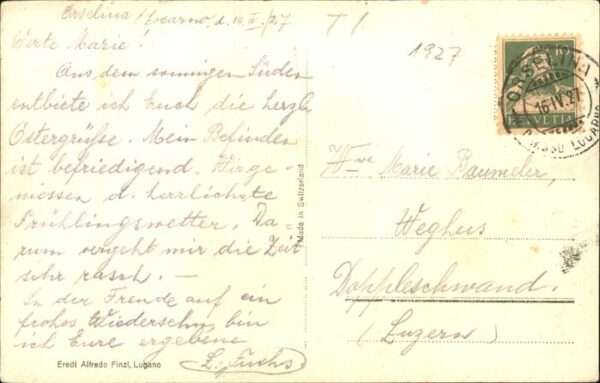 Orselina/Locarno, d. 16. IV. 27
Werte Marie!
Aus dem sonnigen Süden
entbiete ich Euch die herzl.
Ostergrüße. Mein Befinden
ist befriedigend. Wir ge-
niessen d. herrlichste
Frühlingswetter. Da
rum vergeht mir die Zeit
sehr rasch. —
In der Freude auf ein
frohes Wiedersehn, bin
ich Eure ergebene
L. Fuchs
Eredi Alfredo Finzi, Lugano
Made in Switzerland
T 1
1927
HELVETIA
ORSELINA
16.IV.27
Marie Baumeler,
Weghus
Doppleschwand.
(Luzern)